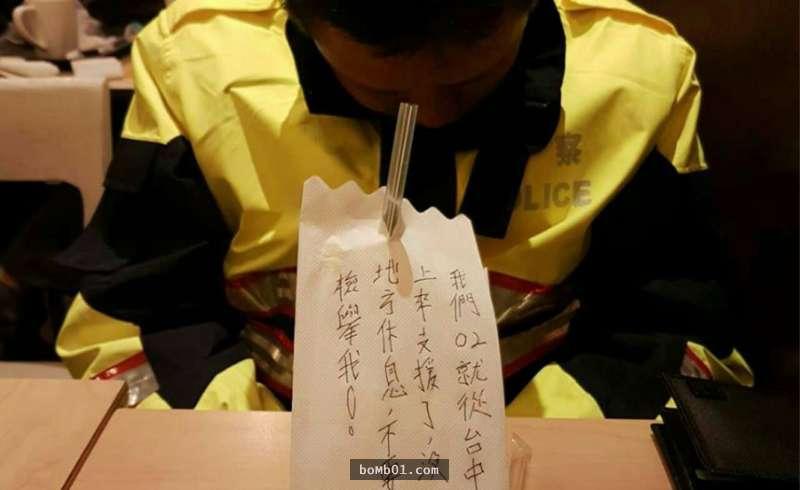 我們02就從台中
上來支援了,沒
地方休息,不要
檢舉我
察
OLICE
boMb01.com